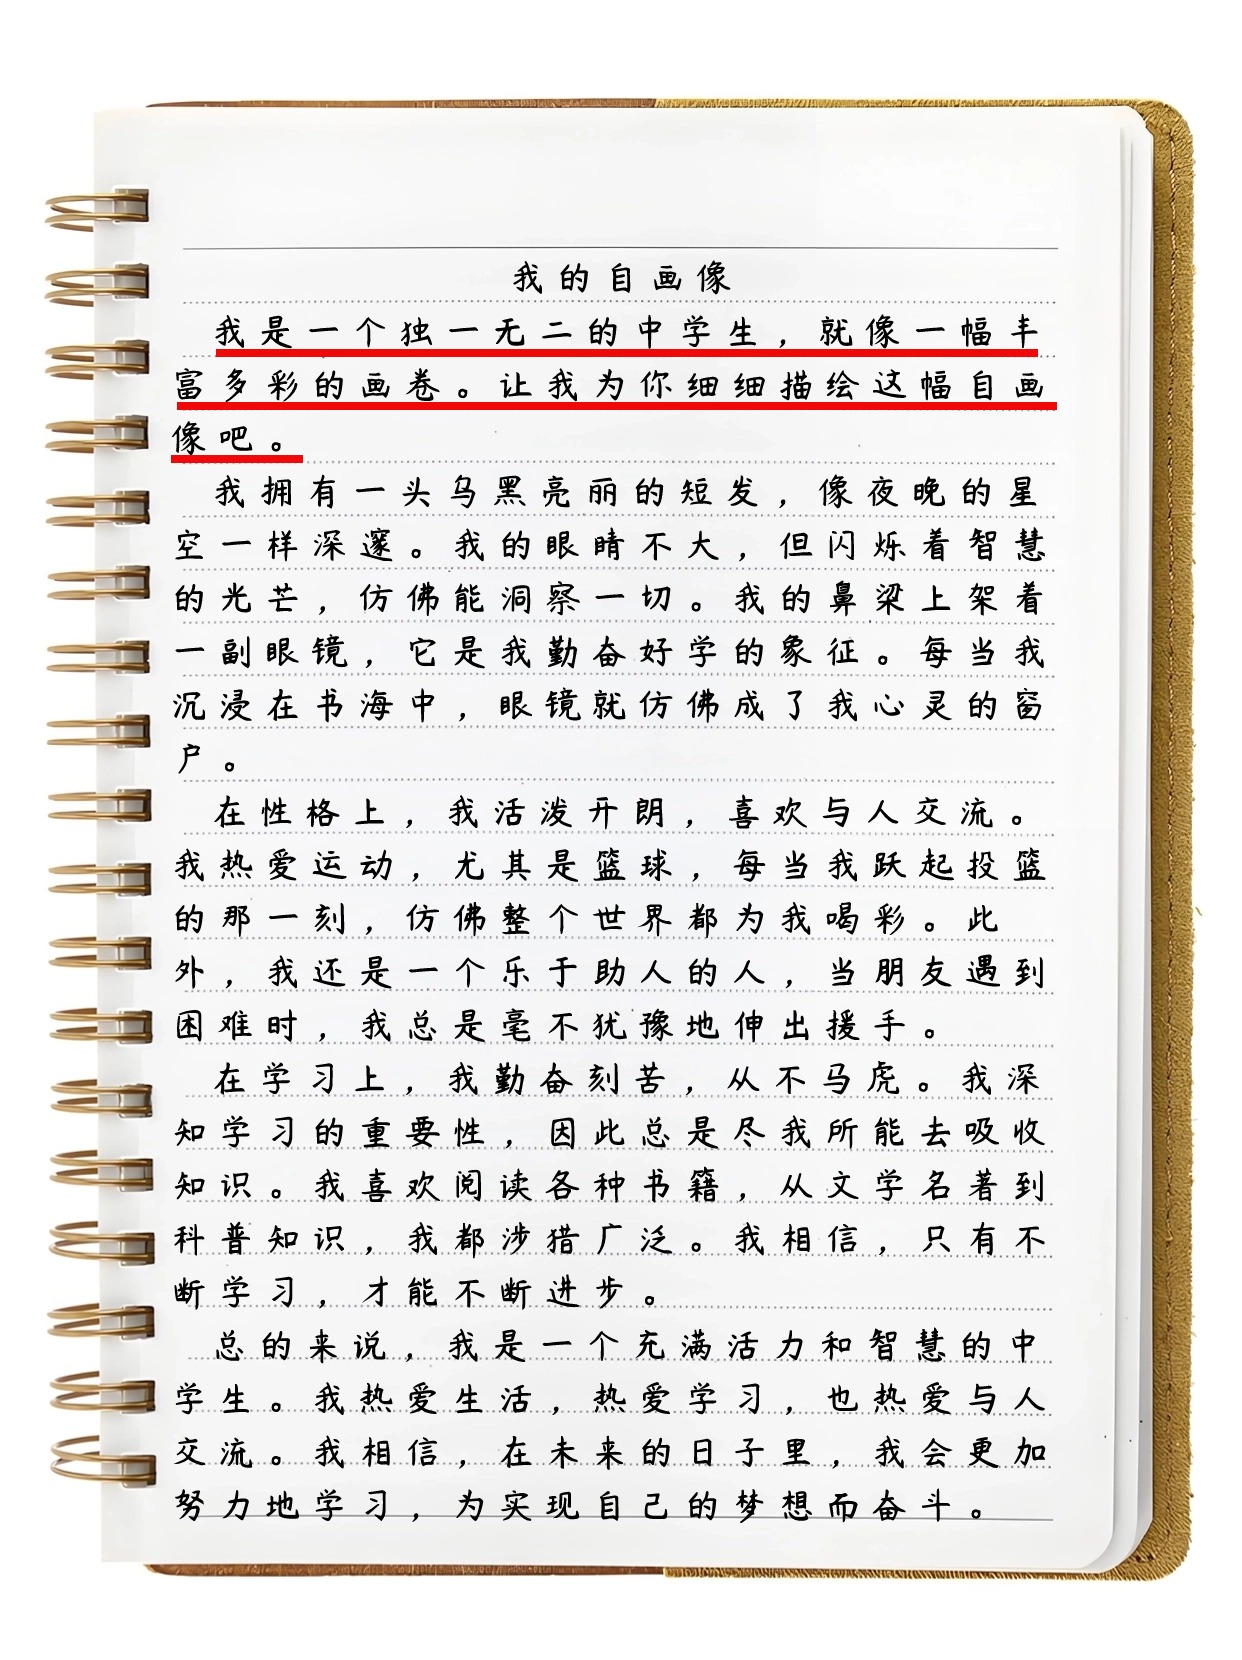 我的自画像
我是一个独一无二的中学生，就像一幅丰
富多彩的画卷。让我为你细细描绘这幅自画
像吧。
我拥有一头乌黑亮丽的短发，像夜晚的星
空一样深邃。我的眼睛不大，但闪烁着智慧
的光芒，仿佛能洞察一切。我的鼻梁上架着
一副眼镜，它是我勤奋好学的象征。每当我
沉浸在书海中，眼镜就仿佛成了我心灵的窗
户。
在性格上，我活泼开朗，喜欢与人交流。
我热爱运动，尤其是篮球，每当我跃起投篮
的那一刻，仿佛整个世界都为我喝彩。此
外，我还是一个乐于助人的人，当朋友遇到
困难时，我总是毫不犹豫地伸出援手。
在学习上，我勤奋刻苦，从不马虎。我深
知学习的重要性，因此总是尽我所能去吸收
知识。我喜欢阅读各种书籍，从文学名著到
科普知识，我都涉猎广泛。我相信，只有不
断学习，才能不断进步。
总的来说，我是一个充满活力和智慧的中
学生。我热爱生活，热爱学习，也热爱与人
交流。我相信，在未来的日子里，我会更加
努力地学习，为实现自己的梦想而奋斗。